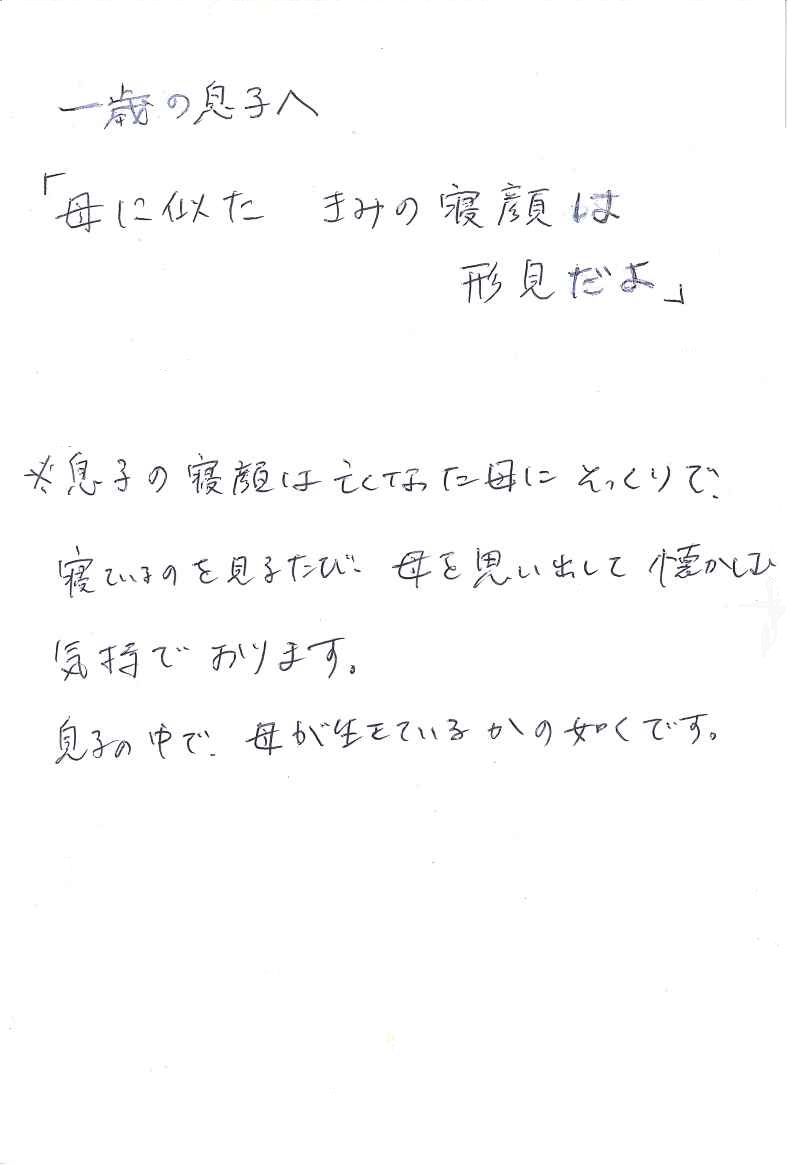 一歳の息子へ
「母に似た きみの寝顔は
形見だよ」
※息子の寝顔は亡くなった母にそっくりで、
寝ているのを見るたび、母を思い出して懐かしむ
気持でおります。
息子の中で、母が生きているかの如くです。